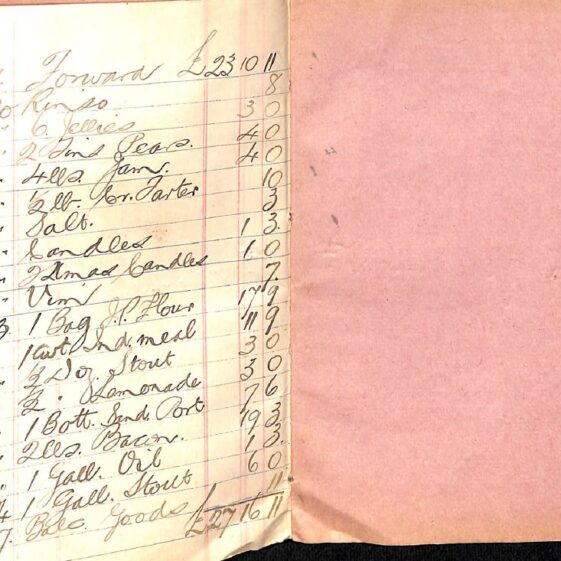 Forward £23 10 11
Rinso 8
6 Jellies 3 0
2 Tins Pears. 4 0
4lbs. Jam. 4 0
½lb. Cr. Tarter 10
Salt. 3
Candles 1 3
2 Xmas Candles 1 0
Vim 7
1 Bag S.P. Flour 17 9
1 cwt Ind. meal 11 9
½ Doz Stout 3 0
½ " Lemonade 3 0
1 Bott. Port 7 6
2lbs. Bacon. 19 3
1 Gall. Oil 1 3
1 Gall. Stout 6 0
Balc. Goods 11
£27 16 11